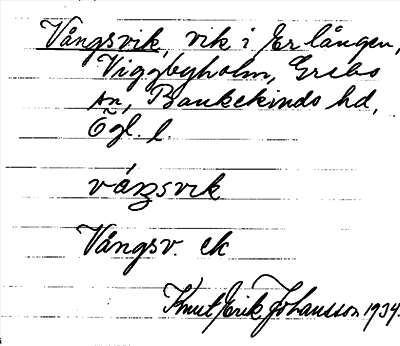 Vångsvik, vik i Erlången,
Viggbyholm, Grebo
sn, Bankekinds hd,
Ögl. l.
váŋsvik
Vångsv. ek
Knut Erik Johansson 1934.